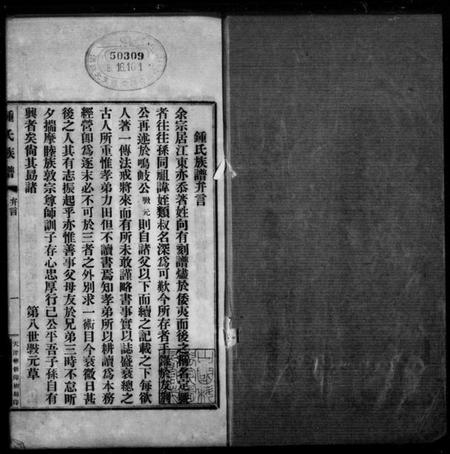 50309
16.10.1
鍾氏族譜弁言
余宗居江東亦忝著姓向有刻譜燼於倭夷而後之
者往往孫同祖諱姪類叔名深爲可歎今所存者手
公再述於鳴岐公戩元則自諸父以下而續之記載之下每欲
人著一傳法戒將來而有所未敢謹略書事實以誌盛衰總之
古人所重惟孝弟力田但不讀書焉知孝弟所以耕讀爲本務
經營卽爲逐末必不可於三者之外別求一術目今衰微日甚
後之人其有志振起乎亦惟善事父母友於兄弟三時不怠昕
夕揣摩睦族敦宗尊師訓子存心忠厚行己公平吾子孫自有
興者矣尙其勗諸
第八世戩元草
鍾氏族譜
弁言
一